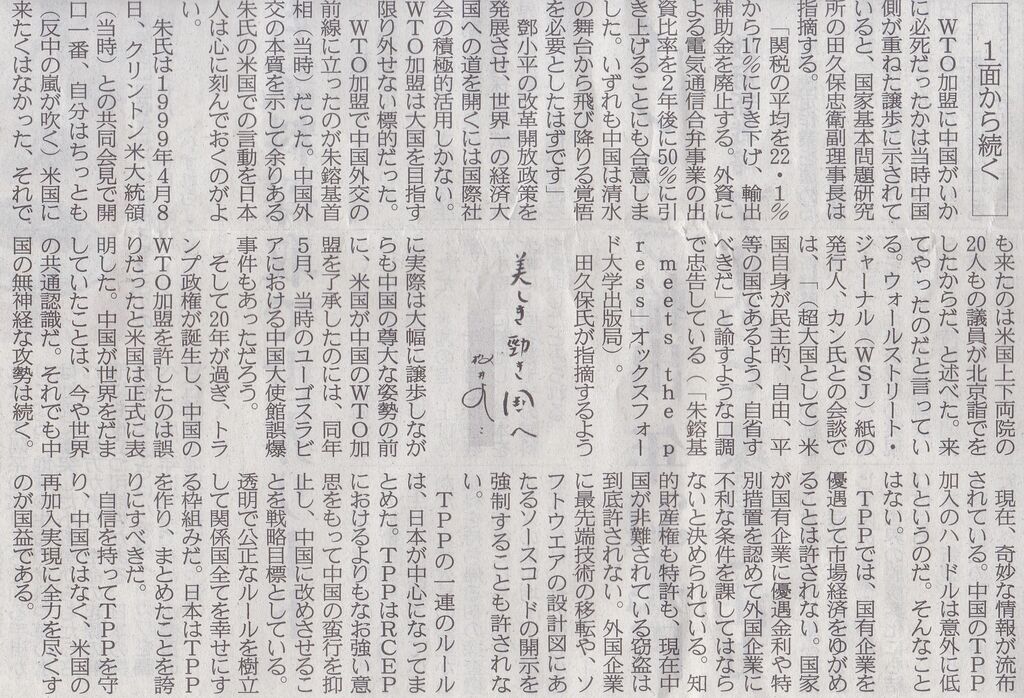 1面から続く
　WTO加盟に中国がいか
に必死だったかは当時中国
側が重ねた譲歩に示されて
いると、国家基本問題研究
所の田久保忠衛副理事長は
指摘する。
　「関税の平均を22・1%
から17%に引き下げ、輸出
補助金を廃止する。外資に
よる電気通信合弁事業の出
資比率を2年後に50%に引
き上げることにも合意しま
した。いずれも中国は清水
の舞台から飛び降りる覚悟
を必要としたはずです」
　鄧小平の改革開放政策を
発展させ、世界一の経済大
国への道を開くには国際社
会の積極的活用しかない。
WTO加盟は大国を目指す
限り外せない標的だった。
　WTO加盟で中国外交の
前線に立ったのが朱鎔基首
相（当時）だった。中国外
交の本質を示して余りある
朱氏の米国での言動を日本
人は心に刻んでおくのがよ
い。
　朱氏は1999年4月8
日、クリントン米大統領
（当時）との共同会見で開
口一番、自分はちっとも
（反中の嵐が吹く）米国に
来たくはなかった、それで
も来たのは米国上下両院の
20人もの議員が北京詣でを
したからだ、と述べた。来
てやったのだと言ってい
る。ウォールストリート・
ジャーナル（WSJ）紙の
発行人、カン氏との会談で
は、「（超大国として）米
国自身が民主的、自由、平
等の国であるよう、自省す
べきだ」と諭すような口調
で忠告している（「朱鎔基
meets the p
ress」オックスフォー
ド大学出版局）。
　田久保氏が指摘するよう
美しき勁き国へ
に実際は大幅に譲歩しなが
らも中国の尊大な姿勢の前
に、米国が中国のWTO加
盟を了承したのには、同年
5月、当時のユーゴスラビ
アにおける中国大使館誤爆
事件もあっただろう。
　そして20年が過ぎ、トラ
ンプ政権が誕生し、中国の
WTO加盟を許したのは誤
りだったと米国は正式に表
明した。中国が世界をだま
していたことは、今や世界
の共通認識だ。それでも中
国の無神経な攻勢は続く。
　現在、奇妙な情報が流布
されている。中国のTPP
加入のハードルは意外に低
いというのだ。そんなこと
はない。
　TPPでは、国有企業を
優遇して市場経済をゆがめ
ることは許されない。国家
が国有企業に優遇金利や特
別措置を認めて外国企業に
不利な条件を課してはなら
ないと決められている。知
的財産権も特許も、現在中
国が非難されている窃盗は
到底許されない。外国企業
に最先端技術の移転や、ソ
フトウエアの設計図にあ
たるソースコードの開示を
強制することも許されな
い。
　TPPの一連のルール
は、日本が中心になってま
とめた。TPPはRCEP
におけるよりもなお強い意
思をもって中国の蛮行を抑
止し、中国に改めさせるこ
とを戦略目標としている。
透明で公正なルールを樹立
して関係国全てを幸せにす
る枠組みだ。日本はTPP
を作り、まとめたことを誇
りにすべきだ。
　自信を持ってTPPを守
り、中国ではなく、米国の
再加入実現に全力を尽くす
のが国益である。